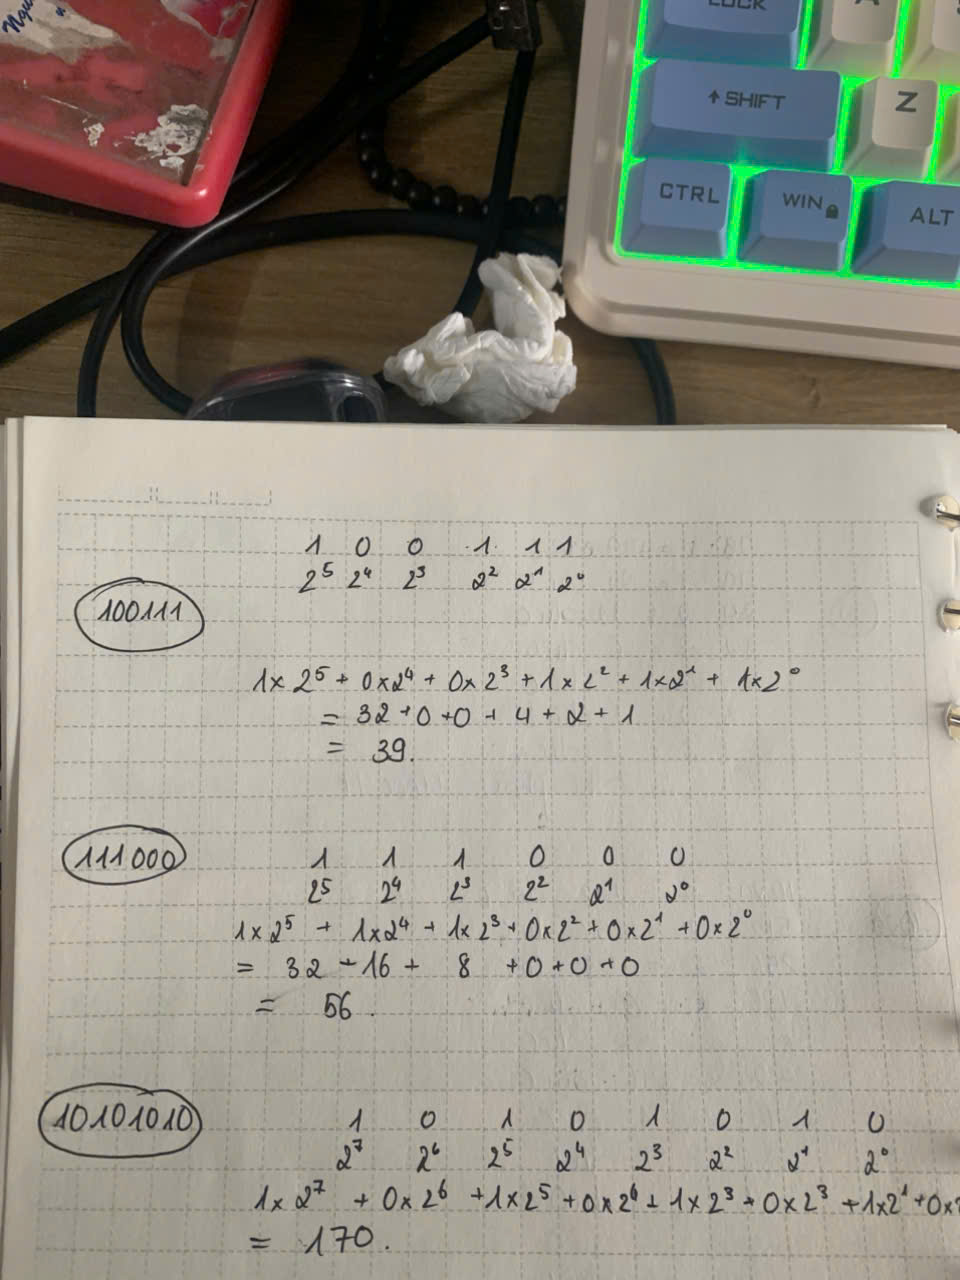 LOCK
A
↑ SHIFT
Z
CTRL
WIN
ALT
1 0 0 1 1 1
2⁵ 2⁴ 2³ 2² 2¹ 2⁰
100111
1x2⁵ + 0x2⁴ + 0x2³ + 1x2² + 1x2¹ + 1x2⁰
= 32 + 0 + 0 + 4 + 2 + 1
= 39.
111000
1 1 1 0 0 0
2⁵ 2⁴ 2³ 2² 2¹ 2⁰
1x2⁵ + 1x2⁴ + 1x2³ + 0x2² + 0x2¹ + 0x2⁰
= 32 + 16 + 8 + 0 + 0 + 0
= 56.
10101010
1 0 1 0 1 0 1 0
2⁷ 2⁶ 2⁵ 2⁴ 2³ 2² 2¹ 2⁰
1x2⁷ + 0x2⁶ + 1x2⁵ + 0x2⁶ + 1x2³ + 0x2³ + 1x2¹ + 0x
= 170.